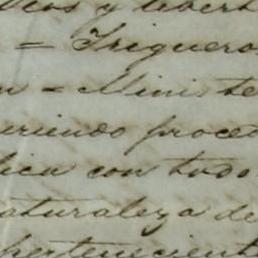 Dios y libert
= Trigueros
n = Ministe
uriendo proced
lica con todo
naturaleza de
pertenecient